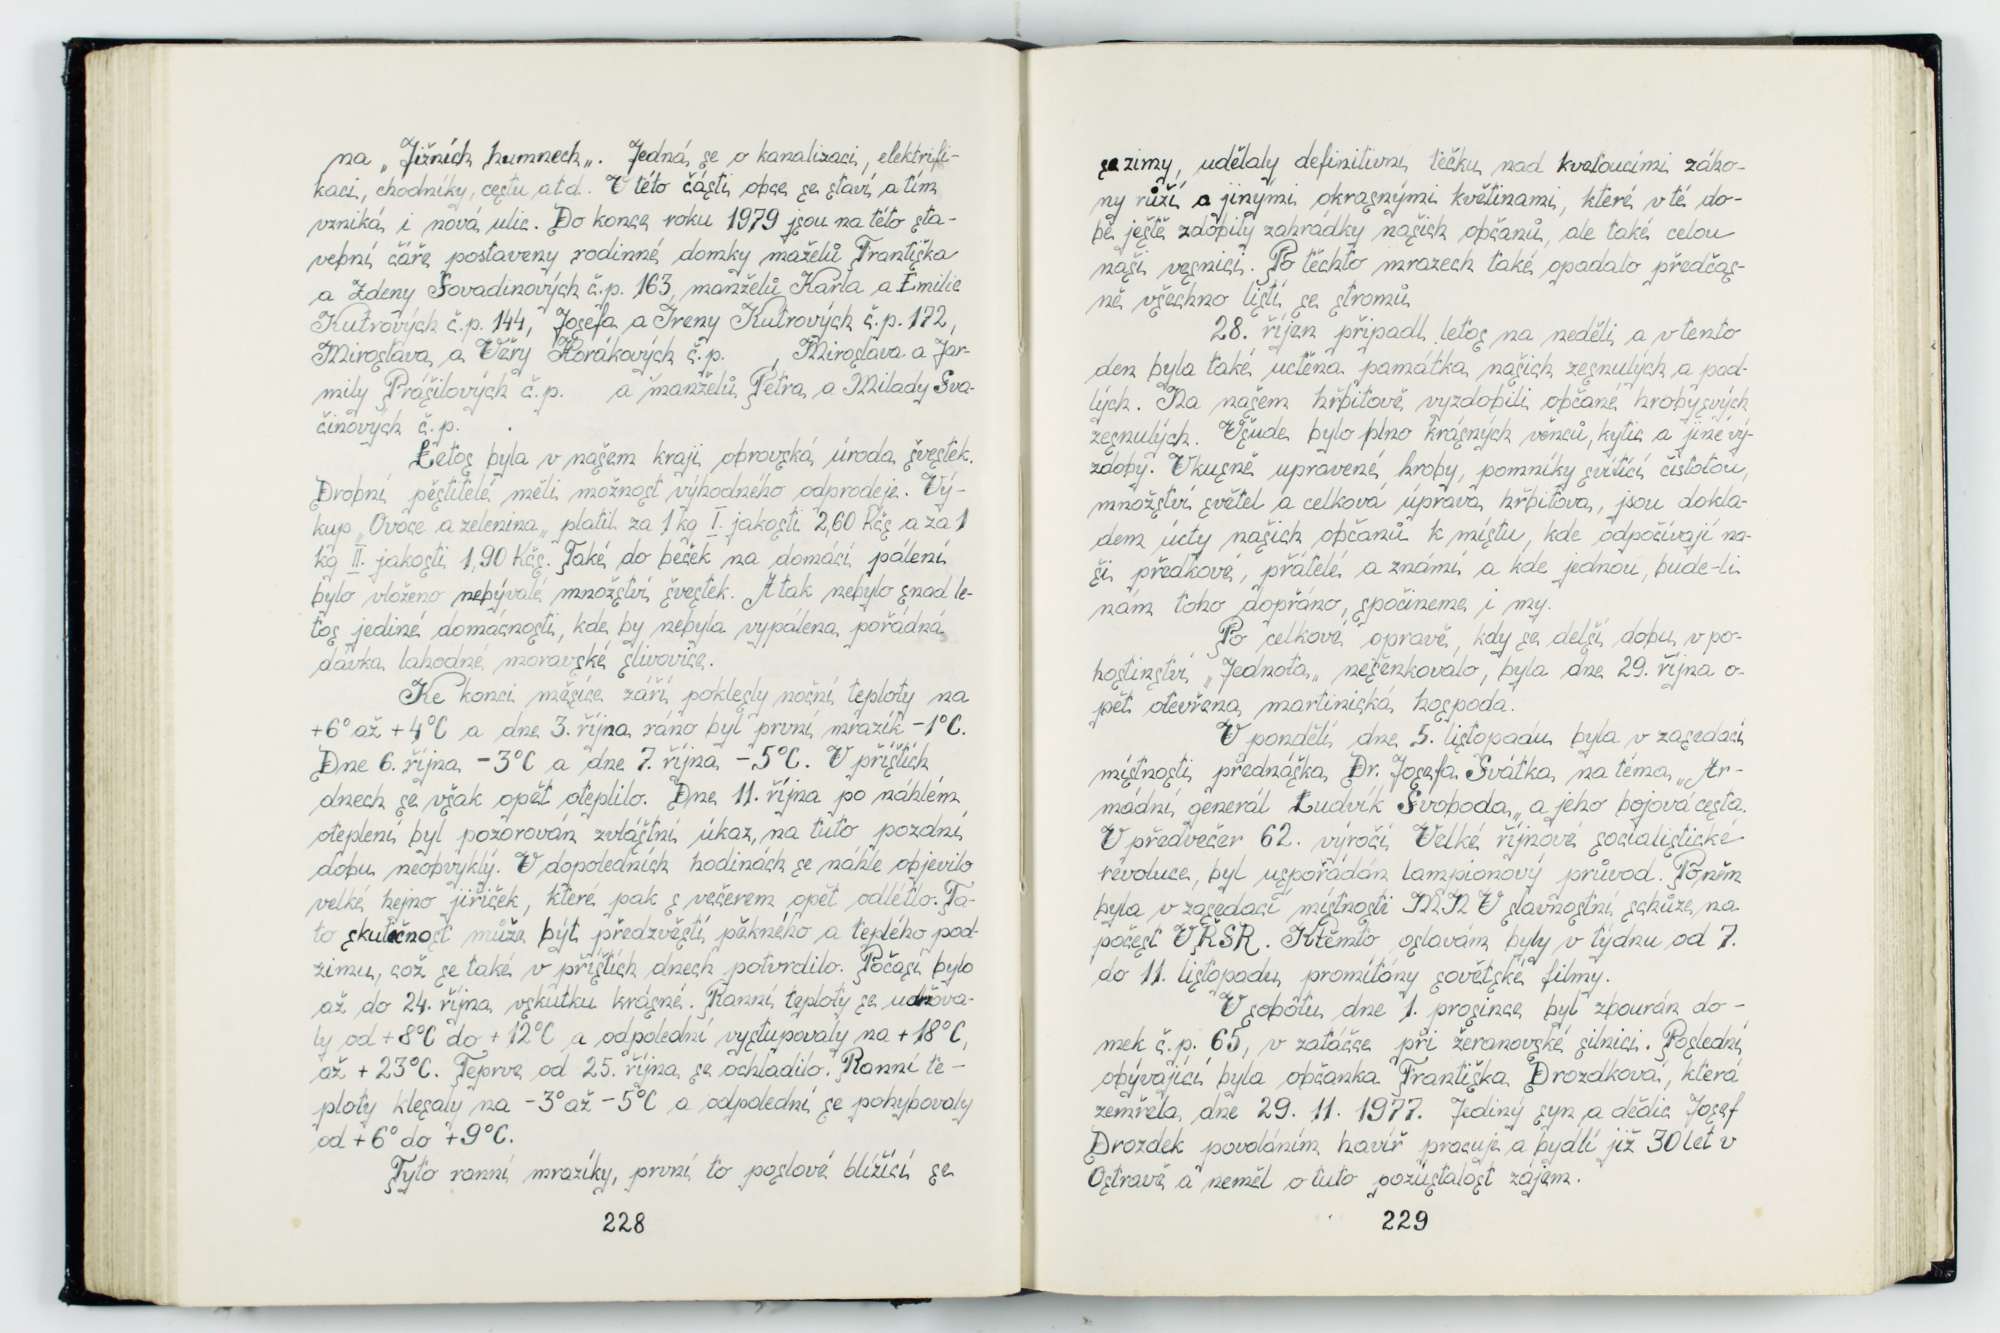 na „Jižních humnech„. Jedná se o kanalizaci, elektrifi-
kaci, chodníky, cestu atd. V této části obce se staví a tím
vzniká i nová ulic. Do konce roku 1979 jsou na této sta-
vební čáře postaveny rodinné domky maželů Františka
a Zdeny Sovadinových č.p. 163, manželů Karla a Emilie
Kutrových č.p. 144, Josefa a Ireny Kutrových č.p. 172,
Miroslava a Věry Horákových č.p. , Miroslava a Jar-
mily Prášilových č.p. a manželů Petra a Milady Sva-
činových č.p. .
Letos byla v našem kraji obrovská úroda švestek.
Drobní pěstitelé měli možnost výhodného odprodeje. Vý-
kup „Ovoce a zelenina„ platil za 1 kg I. jakosti 2,60 Kčs a za 1
kg II. jakosti 1,90 Kčs. Také do beček na domácí pálení
bylo vloženo nebývalé množství švestek. A tak nebylo snad le-
tos jediné domácnosti, kde by nebyla vypálena pořádná
dávka lahodné moravské slivovice.
Ke konci měsíce září poklesly noční teploty na
+6° až +4°C a dne 3. října ráno byl první mrazík -1°C.
Dne 6. října -3°C a dne 7. října -5°C. V příštích
dnech se však opět oteplilo. Dne 11. října po náhlém
oteplení byl pozorován zvláštní úkaz, na tuto pozdní
dobu neobvyklý. V dopoledních hodinách se náhle objevilo
velké hejno jiřiček, které pak s večerem opět odlétlo. Ta-
to skutečnost může být předzvěstí pěkného a teplého pod-
zimu, což se také v příštích dnech potvrdilo. Počasí bylo
až do 24. října vskutku krásné. Ranní teploty se udržova-
ly od +8°C do +12°C a odpolední vystupovaly na +18°C,
až +23°C. Teprve od 25. října se ochladilo. Ranní te-
ploty klesaly na -3° až -5°C a odpolední se pohybovaly
od +6° do +9°C.
Tyto ranní mrazíky, první to poslové blížící se
228
se zimy, udělaly definitivní tečku nad kvetoucími záho-
ny růží a jinými okrasnými květinami, které v té do-
bě ještě zdobily zahrádky našich občanů, ale také celou
naši vesnici. Po těchto mrazech také opadalo předčas-
ně všechno listí se stromů
28. říjen připadl letos na neděli a v tento
den byla také uctěna památka našich zesnulých a pad-
lých. Na našem hřbitově vyzdobili občané hroby svých
zesnulých. Všude bylo plno krásných věnců, kytic a jiné vý-
zdoby. Vkusně upravené hroby, pomníky svítící čistotou,
množství světel a celková úprava hřbitova, jsou dokla-
dem úcty našich občanů k místu, kde odpočívají na-
ši předkové, přátelé a známí a kde jednou, bude-li
nám toho dopřáno, spočineme i my.
Po celkové opravě, kdy se delší dobu v po-
hostinství „Jednota„ nešenkovalo, byla dne 29. října o-
pět otevřena martinická hospoda.
V pondělí dne 5. listopadu byla v zasedací
místnosti přednáška Dr. Josefa Svátka na téma „Ar-
mádní generál Ludvík Svoboda„ a jeho bojová cesta.
V předvečer 62. výročí Velké říjnové socialistické
revoluce, byl uspořádán lampionový průvod. Po něm
byla v zasedací místnosti MNV slavnostní schůze na
počest VŘSR. K těmto oslavám byly v týdnu od 7.
do 11. listopadu promítány sovětské filmy.
V sobotu dne 1. prosince byl zbourán do-
mek č.p. 65, v zatáčce při žeranovské silnici. Poslední
obývající byla občanka Františka Drozdková, která
zemřela dne 29. 11. 1977. Jediný syn a dědic Josef
Drozdek povoláním havíř pracuje a bydlí již 30 let v
Ostravě a neměl o tuto pozůstalost zájem.
229